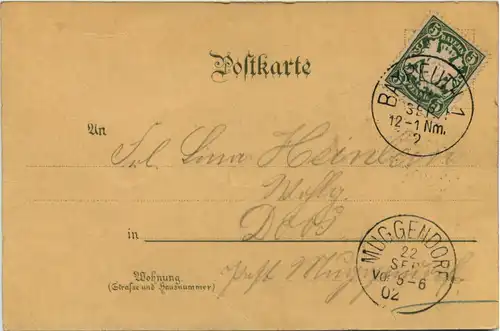 Postkarte
5 BAYERN 5
BAYREUTH 1
SEP
12-1 Nm.
02
An
Frl. Lina
Wohlg.
in DOOS
MUGGENDORF
22
SEP
Vor. 5-6
02
Wohnung
(Strasse und Hausnummer)
Post Muggendorf